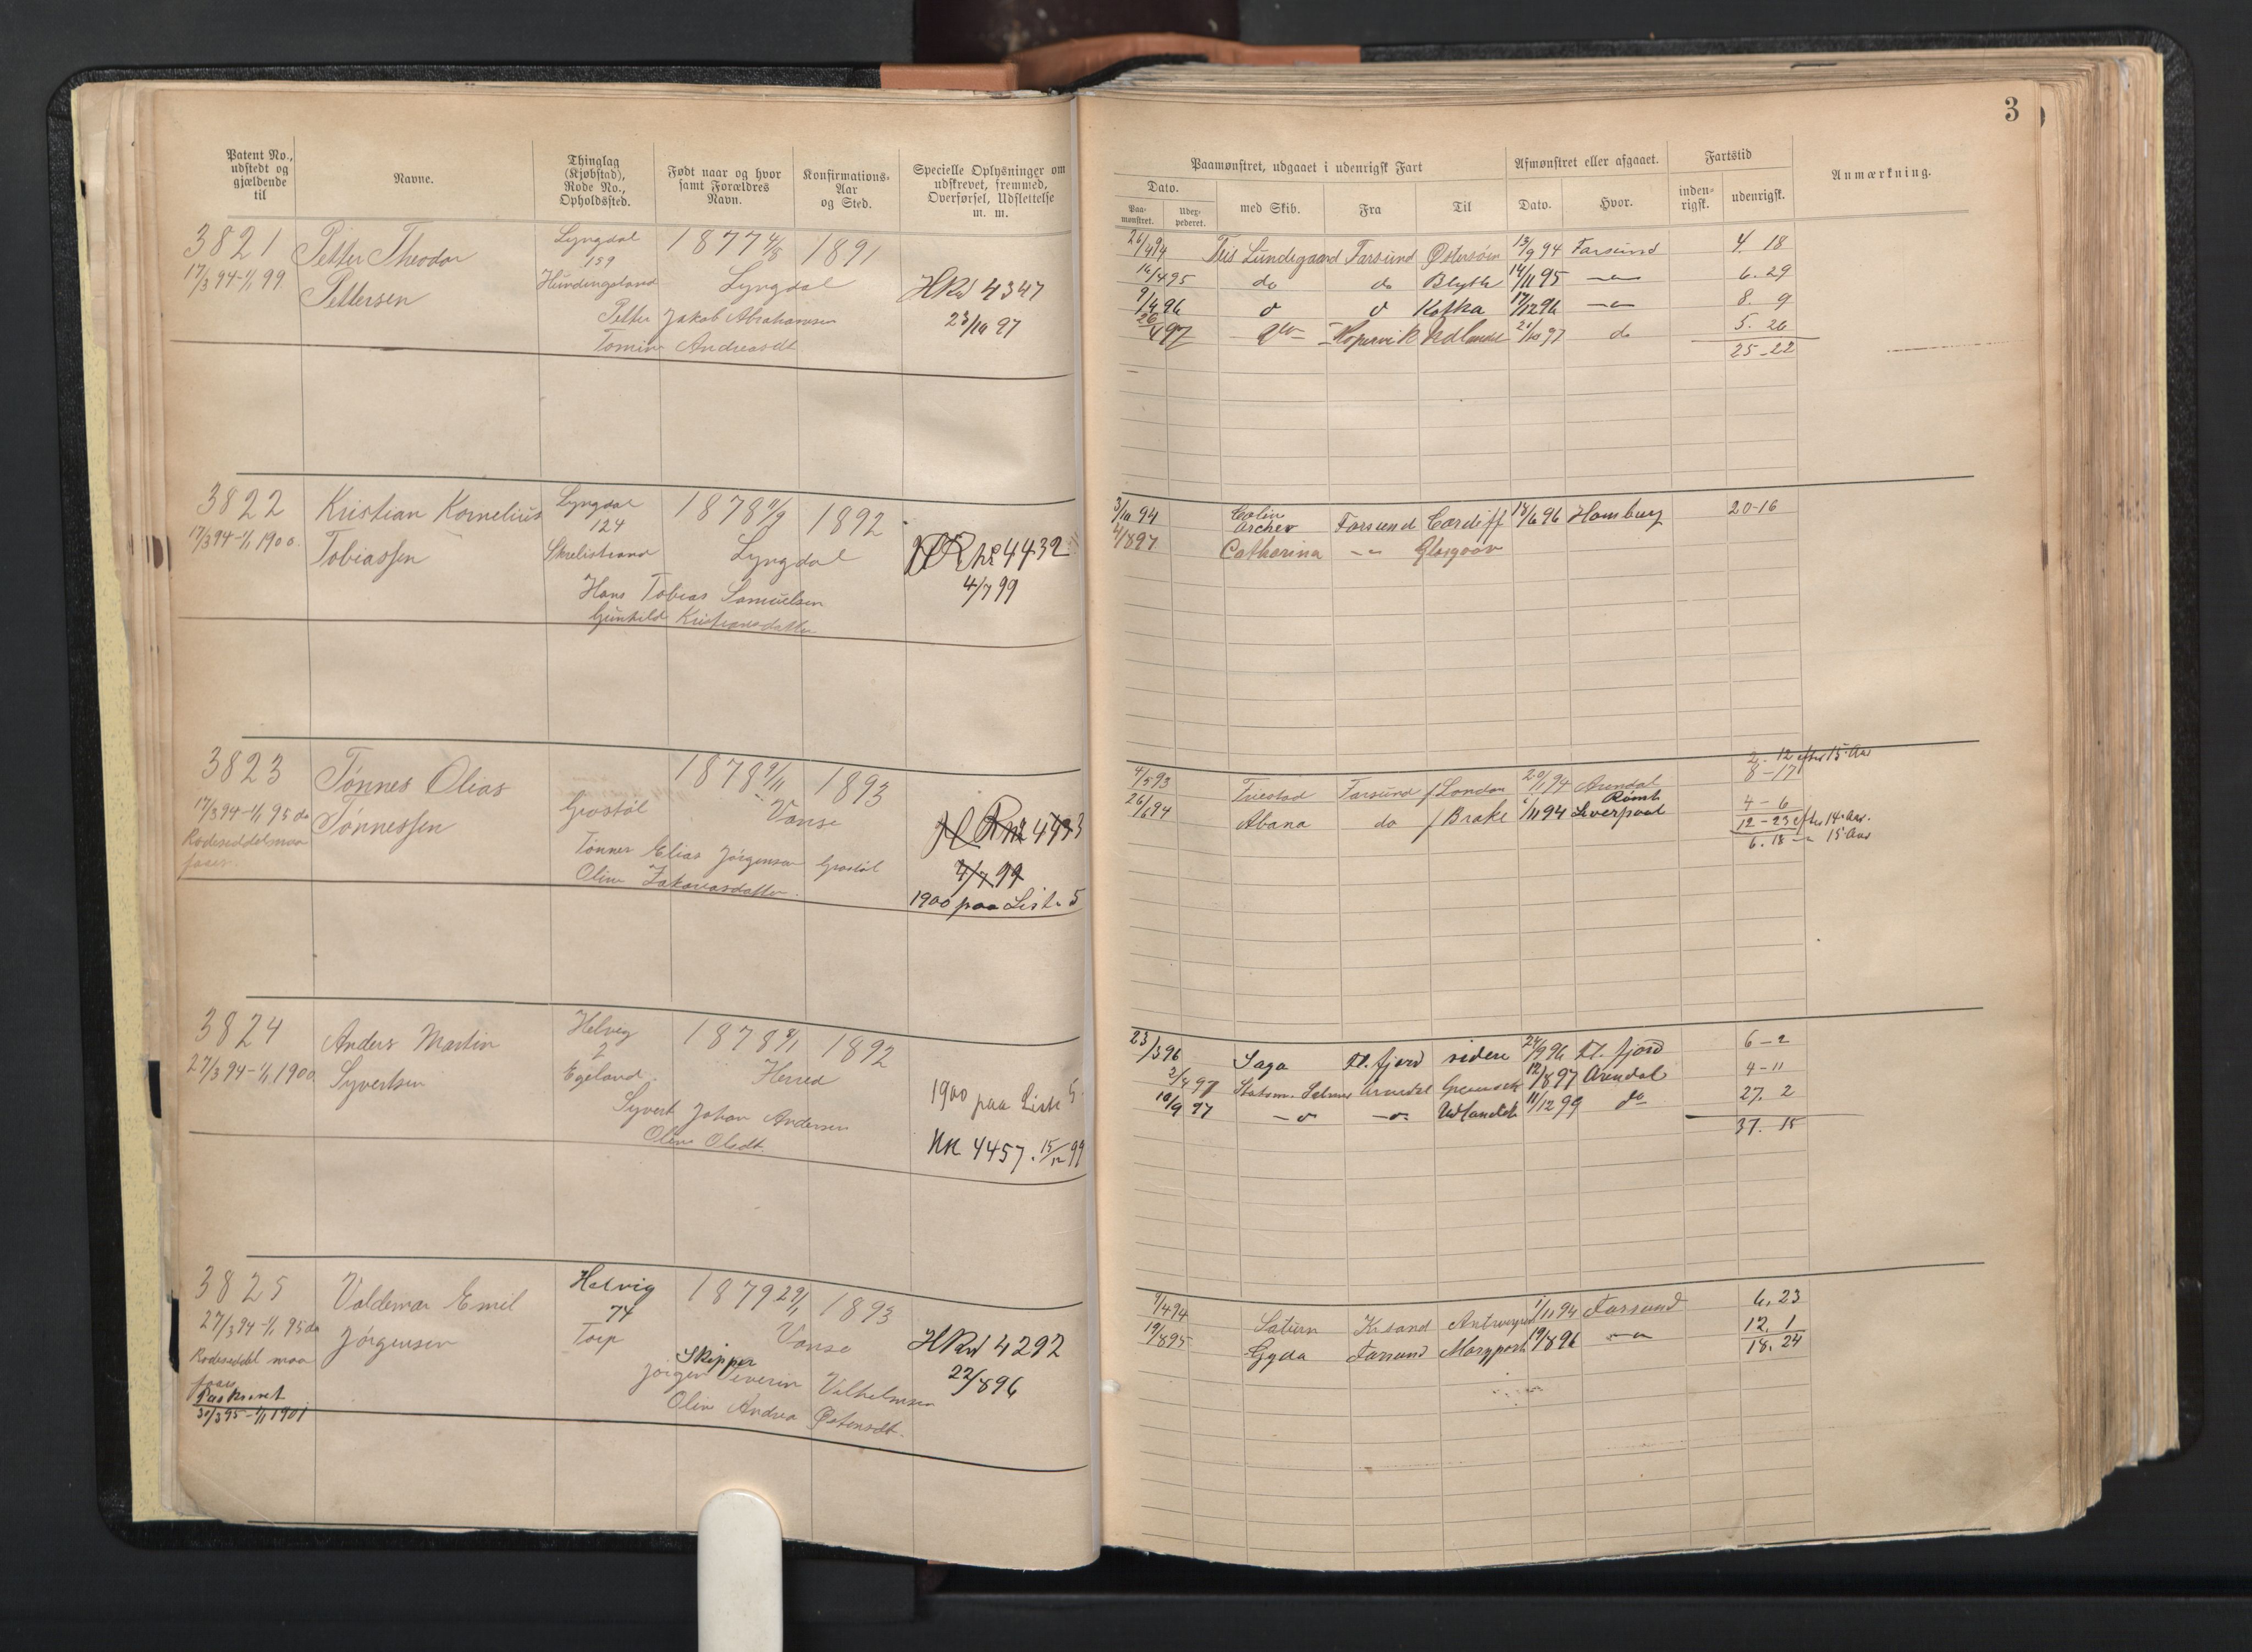 3
Patent No., udstedt og gjældende til
Navne.
Thinglag (Kjøbstad), Rode No., Opholdssted.
Født naar og hvor samt Forældres Navn.
Konfirmations-Aar og Sted.
Specielle Oplysninger om udskrevet, fremmed, Overførsel, Udslettelse m. m.
Paamønstret, udgaaet i udenrigsk Fart
Afmønstret eller afgaaet.
Fartstid
Anmærkning.
Dato.
Paa-mønstret.
Udex-pederet.
med Skib.
Fra
Til
Dato.
Hvor.
inden-rigsk.
udenrigsk.
3821 Petter Theodor Lyngdal 1877 4/8 1891
17/3 94-1/1 99. Pettersen 159 Lyngdal HRd 4347
23/10 97
Petter Jakob Abrahamsen
Tomine Andreasdt
26/4 94 Lundegaard Farsund Østersøen 13/9 94 Farsund 4. 18
16/4 95 do do Blyth 14/11 95 6. 29
9/4 96 Kotka 17/12 96 8. 9
26/4 97 Kopervik Udlandet 21/10 97 do 5. 26
25-22
3822 Kristian Kornelius Lyngdal 1878 9/9 1892
17/3 94-1/1 1900. Tobiassen 124 Lyngdal HR No 4432
Skrelistrand 4/7 99
Hans Tobias Samuelsen
Gunhild Kristiansdatter
3/10 94 Colin Archer Farsund Cardiff 18/6 96 Hamburg 20-16
4/8 97 Catharina Glasgow
3823 Tønnes Olias 1878 9/11 1893
17/3 94-1/1 95 da Tønnessen Grostøl Vanse
Rodeseddel maa faaes.
Tønnes Elias Jørgensen Grostøl
Oline Zakariasdatter.
4433
4/7 99
1900 paa Liste 5
2. 12 efter 15 Aar
4/5 93 Farsund f London 20/1 94 Arendal 8-17
26/6 94 Abana do f Brake 1/11 94 Rømt Liverpool 4-6
12-23 efter 14 Aar.
6. 18 15 Aar
3824 Anders Martin Helvig 1878 8/1 1892
27/3 94-1/1 1900 Syvertsen 2 Herred
Egeland.
Syvert Johan Andersen
Oline Olsdt.
1900 paa Liste 5
HR 4457. 15/12 99
23/3 96 Saga Fl. fjord videre 24/9 96 Fl. fjord 6-2
2/4 97 Arendal 12/8 97 Arendal 4-11
10/9 97 Udlandet 11/12 99 do 27. 2
37. 15
3825 Valdemar Emil Helvig 1879 29/1 1893
27/3 94-1/1 95 da Jørgensen 74 Vanse HRd 4292
Rodeseddel maa faaes Torp 22/8 96
30/3 95-1/1 1901
Skipper
Jørgen Severin Vilhelmsen
Oline Andrea Østensdt.
9/4 94 Saturn Krsand Antwerpen 1/11 94 Farsund 6. 23
19/8 95 Gyda Farsund Maryport 19/8 96 12. 1
18. 24